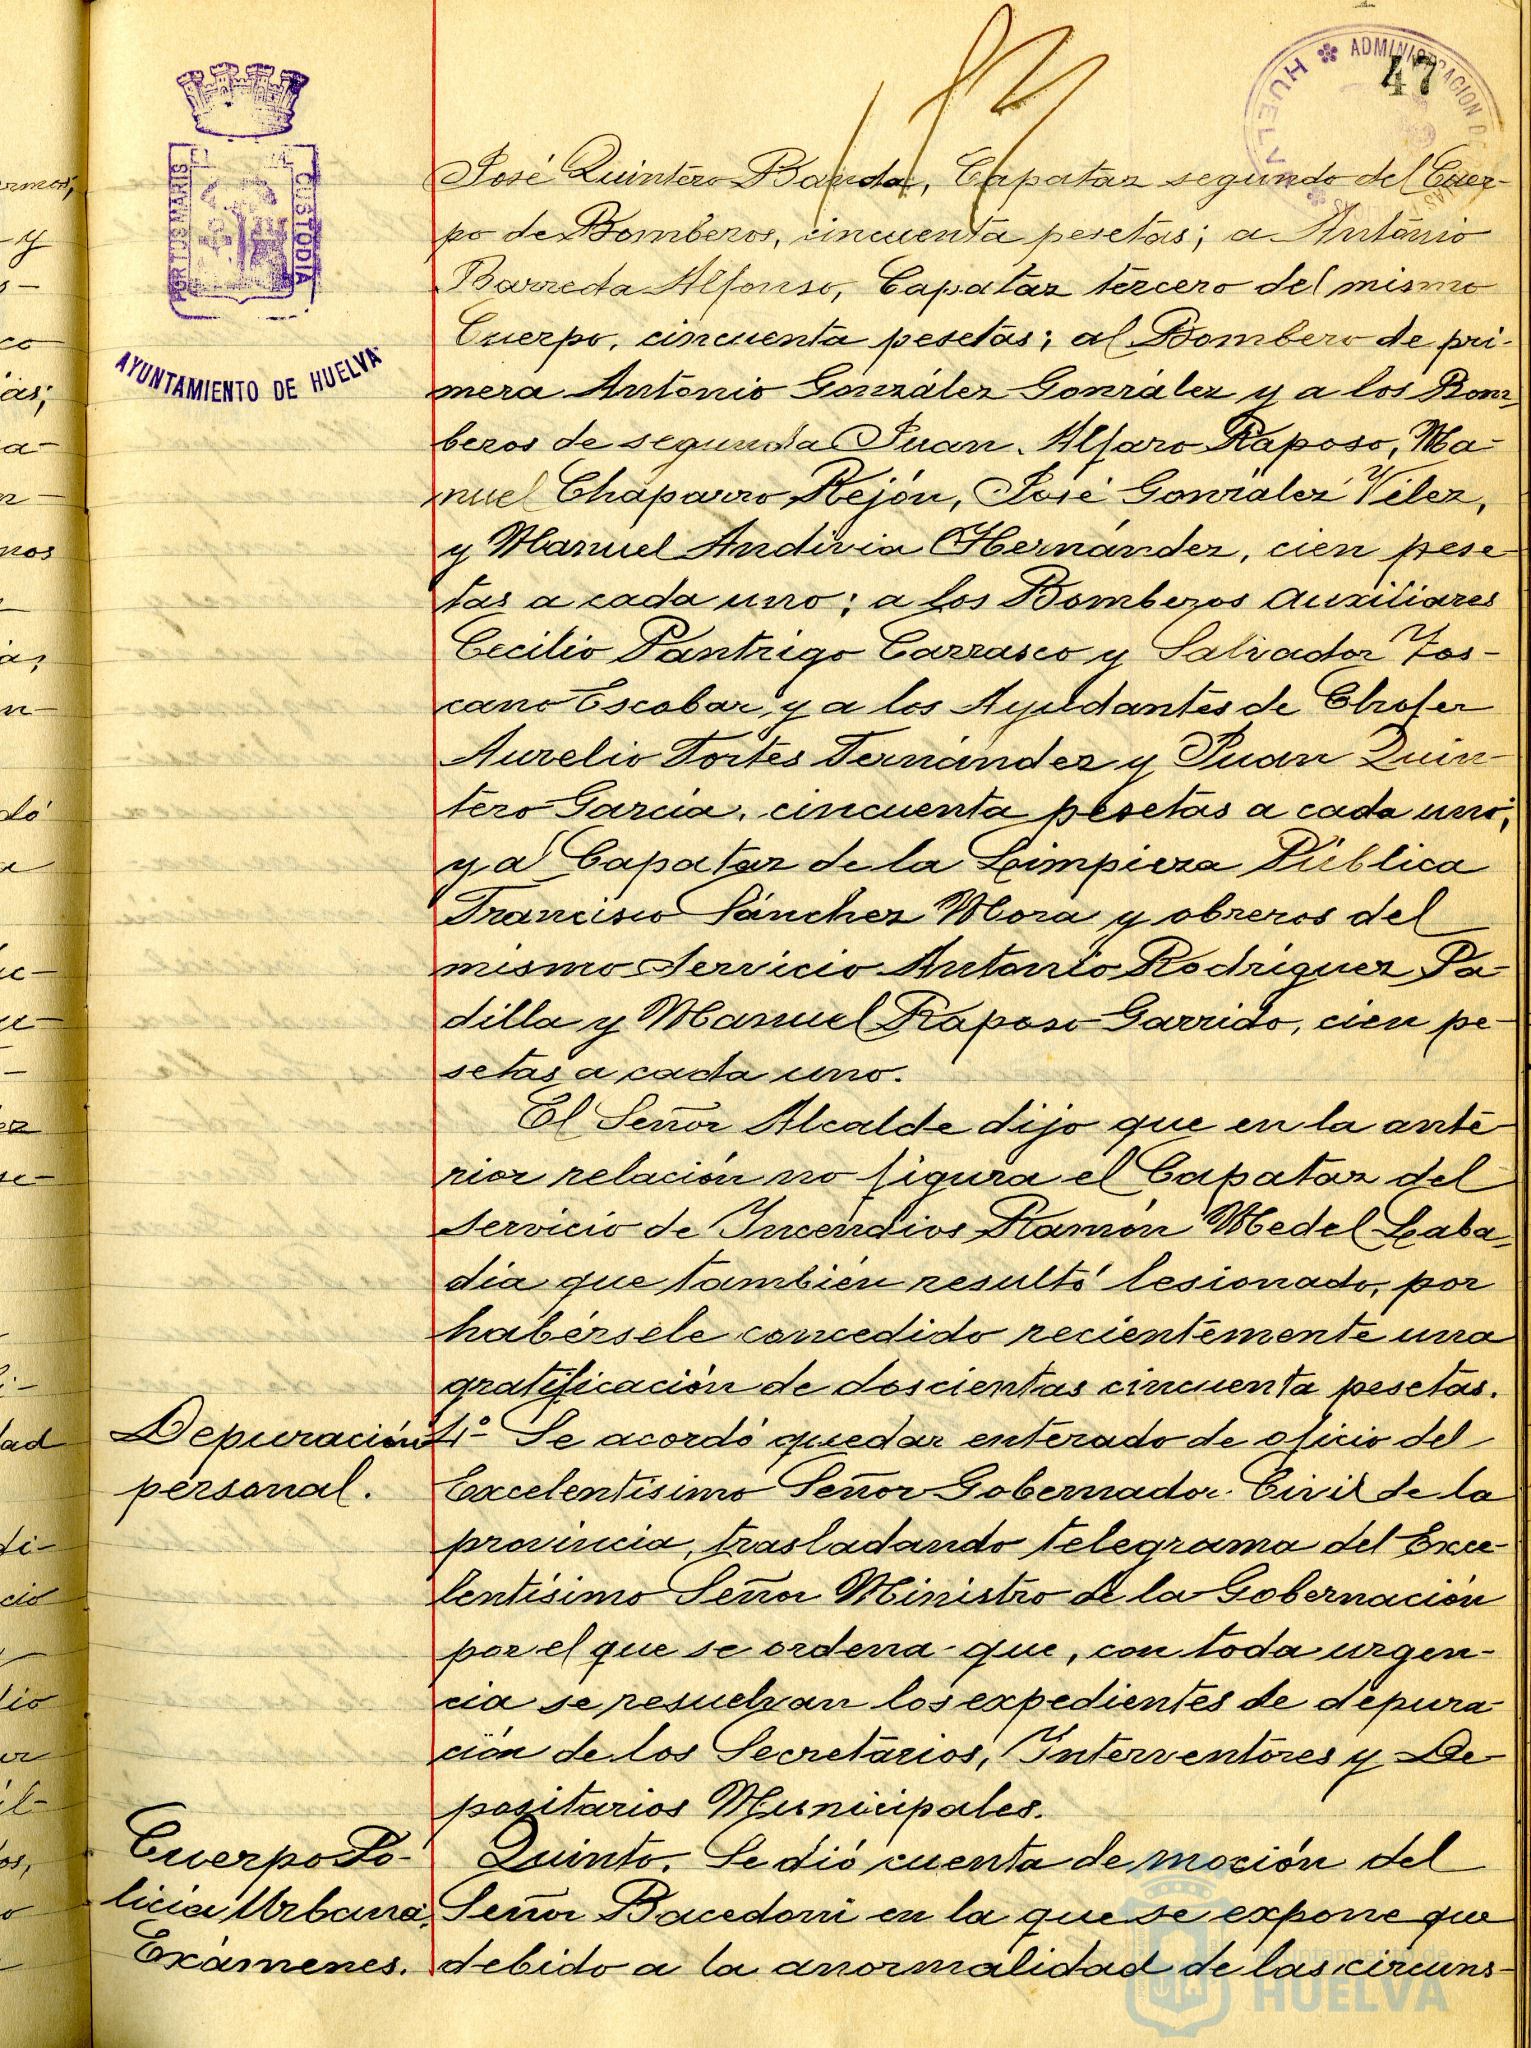 47
ADMINISTRACION D
HUELVA
PORTUS MARIS
CUSTODIA
AYUNTAMIENTO DE HUELVA
José Quintero Banda, Capataz segundo del Cuer-
po de Bomberos, cincuenta pesetas; a Antonio
Barreda Alfonso, Capataz tercero del mismo
Cuerpo, cincuenta pesetas; al Bombero de pri-
mera Antonio González González y a los Bom-
beros de segunda Juan Alfaro Raposo, Ma-
nuel Chaparro Rejón, José González Vélez,
y Manuel Andivia Hernández, cien pese-
tas a cada uno; a los Bomberos auxiliares
Cecilio Pantrigo Carrasco y Salvador Tos-
cano Escobar, y a los Ayudantes de Chofer
Aurelio Fortes Fernández y Juan Quin-
tero García, cincuenta pesetas a cada uno;
y al Capataz de la Limpieza Pública
Francisco Sánchez Mora y obreros del
mismo Servicio Antonio Rodríguez Pa-
dilla y Manuel Raposo Garrido, cien pe-
setas a cada uno.
El Señor Alcalde dijo que en la ante-
rior relación no figura el Capataz del
Servicio de Incendios Ramón Medel Laba-
día que también resultó lesionado, por
habérsele concedido recientemente una
gratificación de doscientas cincuenta pesetas.
Depuración
personal.
4º Se acordó quedar enterado de oficio del
Excelentísimo Señor Gobernador Civil de la
provincia, trasladando telegrama del Exce-
lentísimo Señor Ministro de la Gobernación
por el que se ordena que, con toda urgen-
cia se resuelvan los expedientes de depura-
ción de los Secretarios, Interventores y De-
positarios Municipales.
Cuerpo Po-
licía Urbana.
Exámenes.
Quinto. Se dió cuenta de moción del
Señor Bacedoni en la que se expone que
debido a la anormalidad de las circuns-
Ayuntamiento de
HUELVA